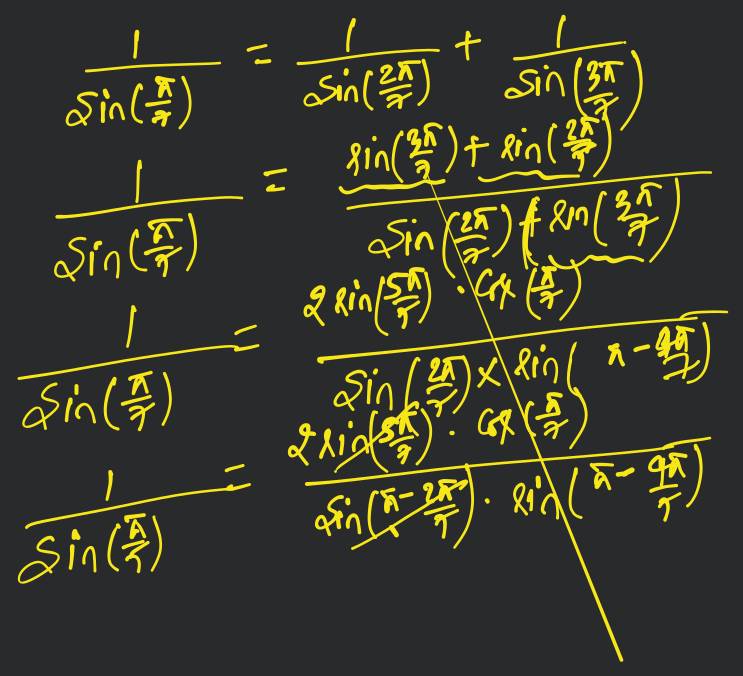 1/Sin(π/7) = 1/Sin(2π/7) + 1/Sin(3π/7)
1/Sin(π/7) = (sin(3π/7) + sin(2π/7))/(Sin(2π/7) sin(3π/7))
1/Sin(π/7) = (2 sin(5π/7) · Cos(π/7))/(Sin(2π/7) × sin(π - 4π/7))
1/Sin(π/7) = (2 sin(5π/7) · Cos(π/7))/(Sin(π - 2π/7) · sin(π - 4π/7))